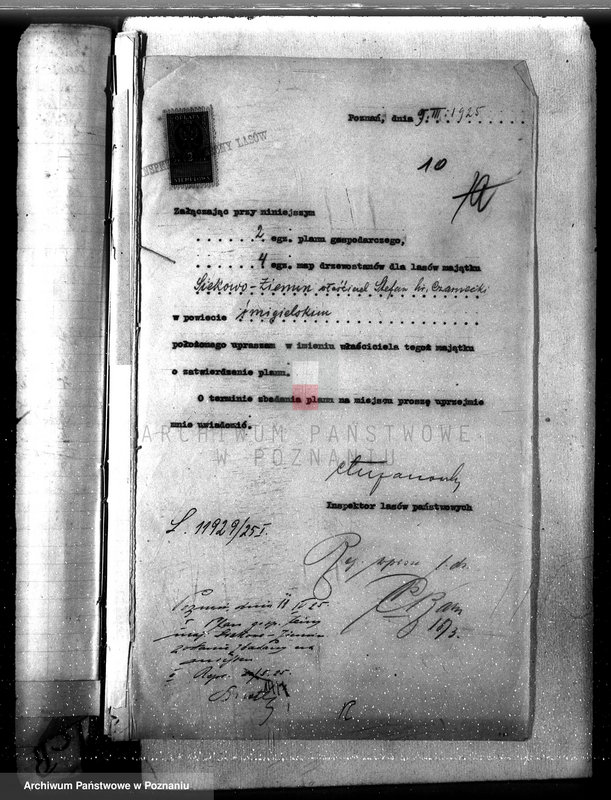 Poznań, dnia 9.III.1925
10
Załączając przy niniejszym
2 egz. planu gospodarczego,
4 egz. map drzewostanów dla lasów majątku
Siekowo-Ziemin właściciel Stefan hr. Czarnecki
w powiecie śmigielskim
położonego upraszam w imieniu właściciela tegoż majątku
o zatwierdzenie planu.
O terminie zbadania planu na miejscu proszę uprzejmie
mnie uwiadomić.
ARCHIWUM PAŃSTWOWE
W POZNANIU
Inspektor lasów państwowych
L. 11929/25 I.
Poznań, dnia
Plan gosp.
maj. Siekowo-Ziemin
zbadany na
Archiwum Państwowe w Poznaniu